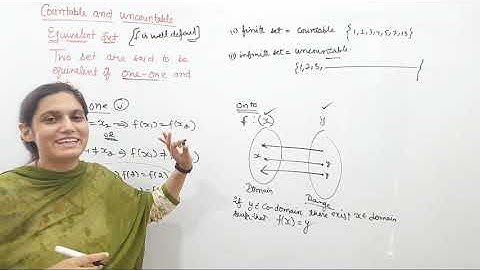 Countable and uncountable
Equivalent Set [f is well defined]
Two set are said to be
equivalent if one-one and
one
= x₂ ⇒ f(x₁) = f(x₂)
or
≠ x₂ ⇒ f(x₁) ≠
f(2) = f(2)
(i) finite set = countable {1, 2, 3, 4, 5, 7, 13}
(ii) infinite set = uncountable
{1, 2, 3,
onto
f: (x) y
x
y
y
Domain Range
If y ∈ Co-domain there exist x ∈ domain
such that f(x) = y